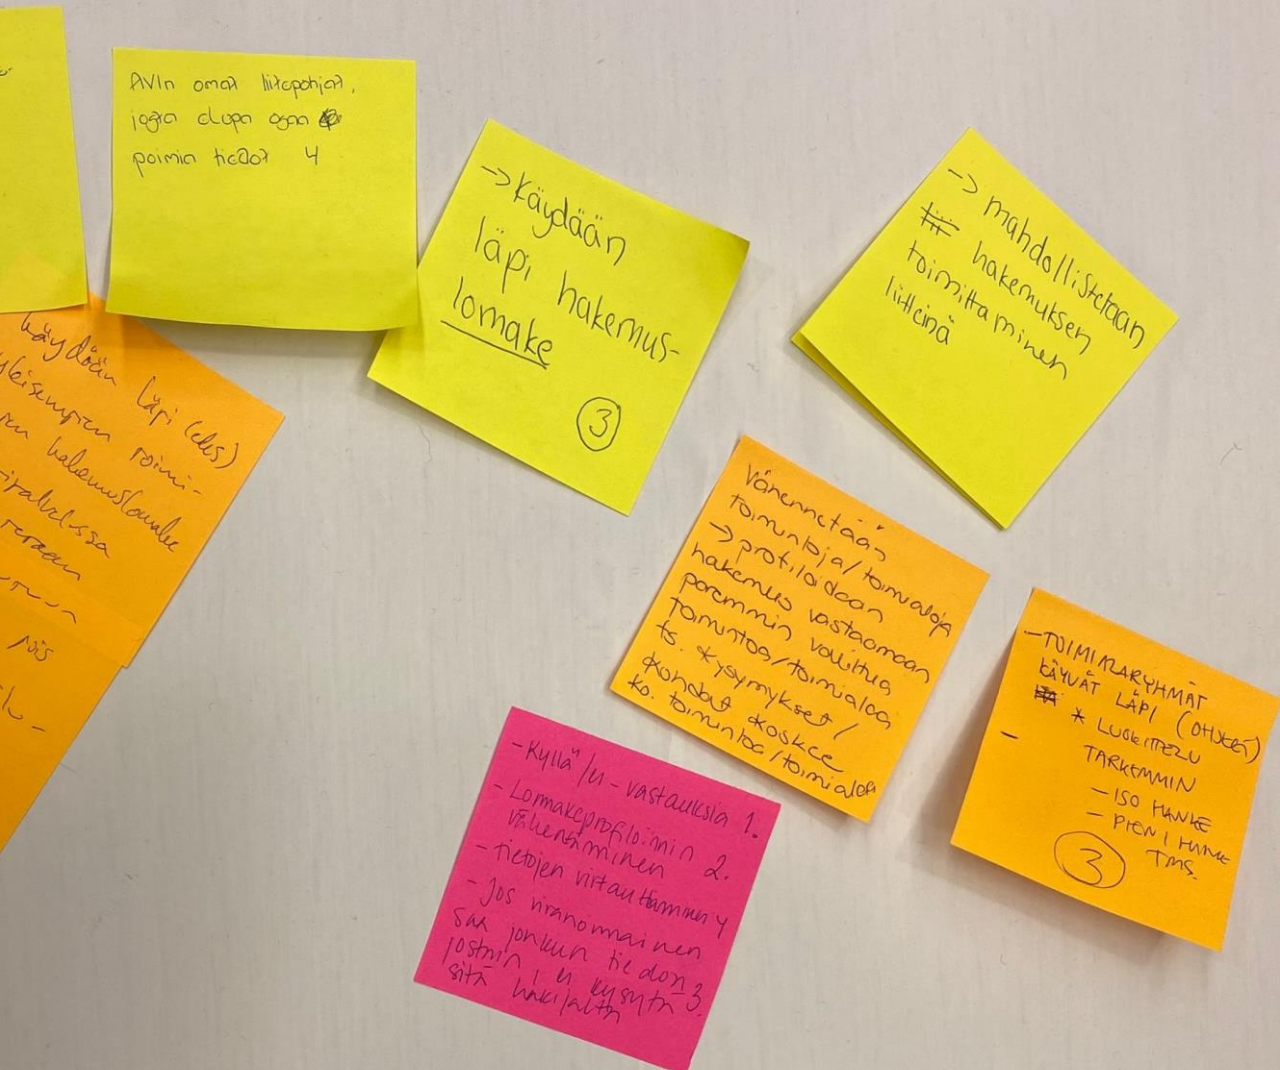 AVIn omat liitepohjat,
josta elupa osaa
poimia tiedot 4
-> Käydään
läpi hakemus-
lomake
3
-> mahdollistetaan
hakemuksen
toimittaminen
liitteinä
käydään läpi (eks)
yleisempien toimi-
hakemuslomake
pois
Vähennetään
toimintoja/toimialoja
-> profiloidaan
hakemus vastaamaan
paremmin valittua
toimintoa/toimialaa
ts. kysymykset/
kohdat koskee
ko. toimintoa/toimialaa
- TOIMIALARYHMÄT
KÄYVÄT LÄPI (OHJEET)
* LUOKITTELU
-
TARKEMMIN
- ISO HANKE
- PIENI HANKE
TMS.
3
- Kyllä/ei-vastauksia 1.
- Lomakeprofiloinnin 2.
vähentäminen
- tietojen virtauttaminen 4
- jos viranomainen
saa jonkun tiedon 3.
jostain, ei kysytä
sitä hakijalta